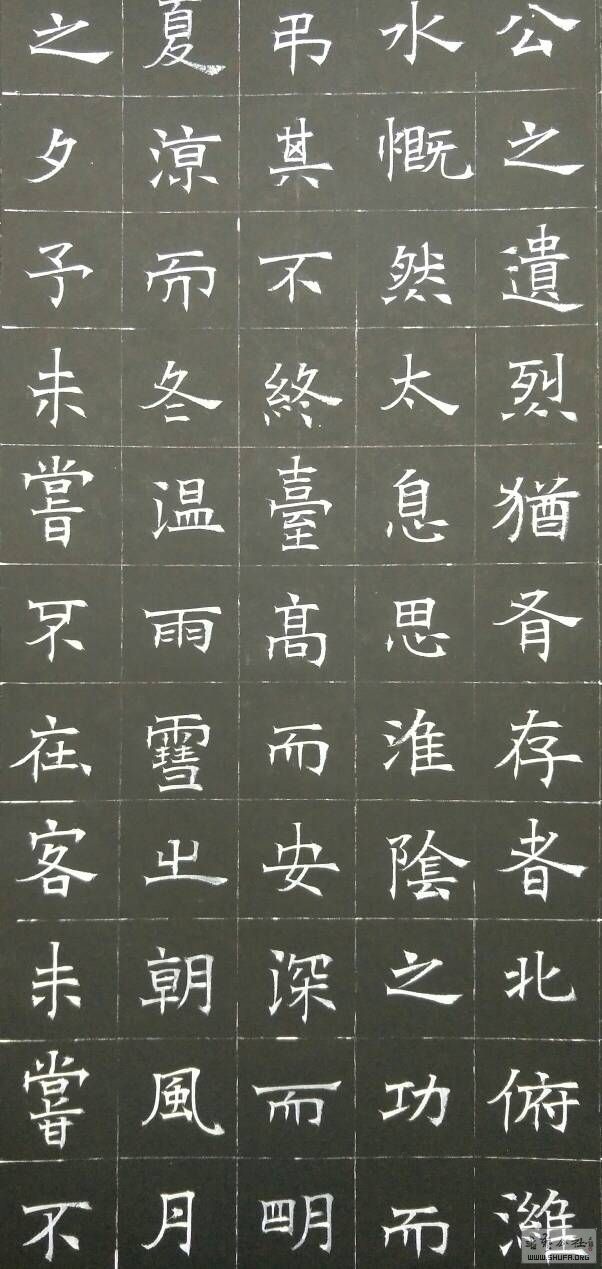 公之遺烈猶有存者北俯濰
水慨然太息思淮陰之功而
弔其不終臺高而安深而明
夏涼而冬温雨雪之朝風月
之夕予未嘗不在客未嘗不
WWW.SHUFA.ORG